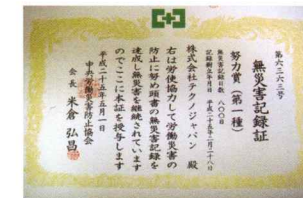 第六二六三号
無災害記録証
努力賞（第一種）
無災害記録日数 八〇〇日
記録樹立年月日 平成二十五年二月二十八日
株式会社テクノジャパン 殿
右は労使協力して労働災害の
防止に努め頭書の無災害記録を
達成し無災害を継続されています
のでここに本証を授与します
平成二十五年五月一日
中央労働災害防止協会
会長 米倉弘昌